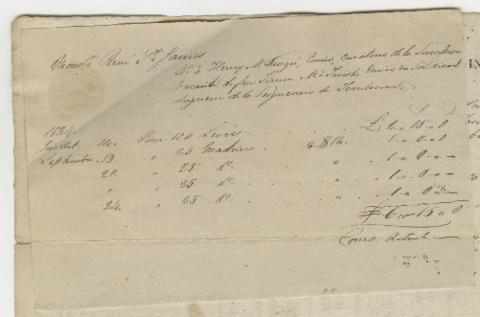 Monsr. René St James
Dr. à Henry McKenzie, Ecuier, Curateur de la Succession
Vacante de feu Simon McTavish Ecuier en son vivant
Seigneur de la Seigneurie de Terrebonne
1804
Juillet 14. Pour 100
£ 2 " 15 " 0
Septembre 13. " 25 Madriers " 1 " 0 " "
20. " 25 do. " 1 " 0 " "
" " 25 do. " 1 " 0 " "
24. " 25 do. " 1 " 0 "
£ 6 " 15 " 0
Cours Actuel
IN